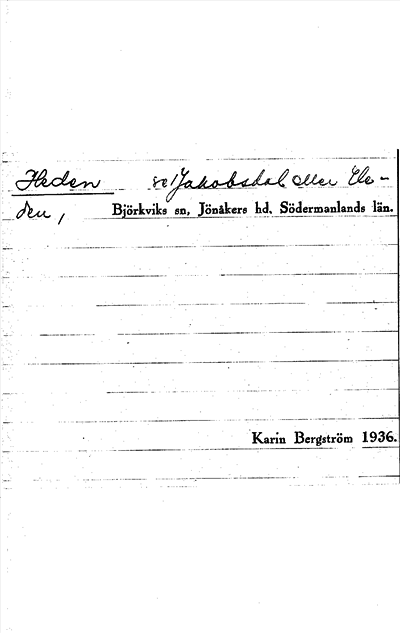 Heden se Jakobsdal eller He-
den,
Björkviks sn, Jönåkers hd, Södermanlands län.
Karin Bergström 1936.